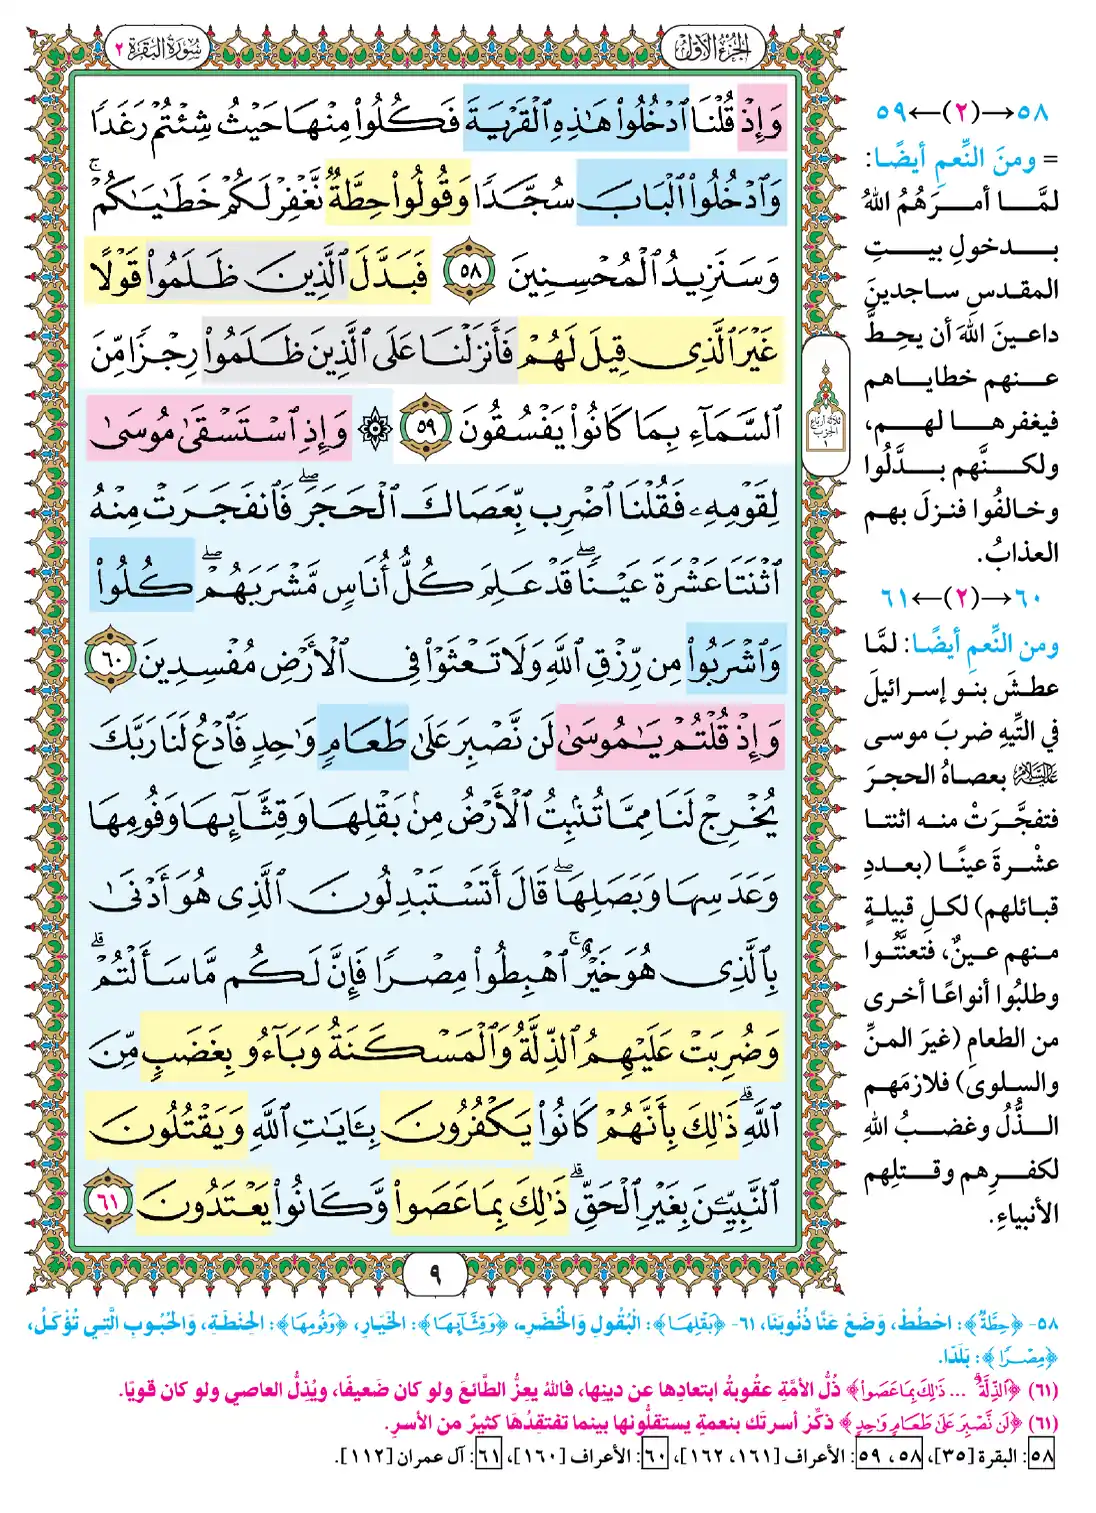 الجزء الأول
سورة البقرة ٢
وَإِذْ قُلْنَا ٱدْخُلُوا۟ هَـٰذِهِ ٱلْقَرْيَةَ فَكُلُوا۟ مِنْهَا حَيْثُ شِئْتُمْ رَغَدًا
وَٱدْخُلُوا۟ ٱلْبَابَ سُجَّدًا وَقُولُوا۟ حِطَّةٌ نَّغْفِرْ لَكُمْ خَطَـٰيَـٰكُمْ ۚ
وَسَنَزِيدُ ٱلْمُحْسِنِينَ ٥٨ فَبَدَّلَ ٱلَّذِينَ ظَلَمُوا۟ قَوْلًا
غَيْرَ ٱلَّذِى قِيلَ لَهُمْ فَأَنزَلْنَا عَلَى ٱلَّذِينَ ظَلَمُوا۟ رِجْزًا مِّنَ
ٱلسَّمَآءِ بِمَا كَانُوا۟ يَفْسُقُونَ ٥٩ ۞ وَإِذِ ٱسْتَسْقَىٰ مُوسَىٰ
لِقَوْمِهِۦ فَقُلْنَا ٱضْرِب بِّعَصَاكَ ٱلْحَجَرَ ۖ فَٱنفَجَرَتْ مِنْهُ
ٱثْنَتَا عَشْرَةَ عَيْنًا ۖ قَدْ عَلِمَ كُلُّ أُنَاسٍ مَّشْرَبَهُمْ ۖ كُلُوا۟
وَٱشْرَبُوا۟ مِن رِّزْقِ ٱللَّهِ وَلَا تَعْثَوْا۟ فِى ٱلْأَرْضِ مُفْسِدِينَ ٦٠
وَإِذْ قُلْتُمْ يَـٰمُوسَىٰ لَن نَّصْبِرَ عَلَىٰ طَعَامٍ وَٰحِدٍ فَٱدْعُ لَنَا رَبَّكَ
يُخْرِجْ لَنَا مِمَّا تُنۢبِتُ ٱلْأَرْضُ مِنۢ بَقْلِهَا وَقِثَّآئِهَا وَفُومِهَا
وَعَدَسِهَا وَبَصَلِهَا ۖ قَالَ أَتَسْتَبْدِلُونَ ٱلَّذِى هُوَ أَدْنَىٰ
بِٱلَّذِى هُوَ خَيْرٌ ۚ ٱهْبِطُوا۟ مِصْرًا فَإِنَّ لَكُم مَّا سَأَلْتُمْ ۗ
وَضُرِبَتْ عَلَيْهِمُ ٱلذِّلَّةُ وَٱلْمَسْكَنَةُ وَبَآءُو بِغَضَبٍ مِّنَ
ٱللَّهِ ۗ ذَٰلِكَ بِأَنَّهُمْ كَانُوا۟ يَكْفُرُونَ بِـَٔايَـٰتِ ٱللَّهِ وَيَقْتُلُونَ
ٱلنَّبِيِّـۧنَ بِغَيْرِ ٱلْحَقِّ ۗ ذَٰلِكَ بِمَا عَصَوا۟ وَّكَانُوا۟ يَعْتَدُونَ ٦١
ثلاثة أرباع
الحزب
١
٥٨→(٢)←٥٩
= ومنَ النِّعمِ أيضًا:
لمَّا أمرَهُمُ اللهُ
بدخولِ بيتِ
المقدسِ ساجدينَ
داعينَ اللهَ أن يحِطَّ
عنهم خطاياهم
فيغفرها لهم،
ولكنَّهم بدَّلُوا
وخالفُوا فنزلَ بهم
العذابُ.
٦٠→(٢)←٦١
ومن النِّعمِ أيضًا: لمَّا
عطشَ بنو إسرائيلَ
في التِّيهِ ضربَ موسى
عليه السلام بعصاهُ الحجرَ
فتفجَّرَتْ منه اثنتا
عشْرةَ عينًا (بعددِ
قبائلهم) لكلِ قبيلةٍ
منهم عينٌ، فتعنَّتُوا
وطلبُوا أنواعًا أخرى
من الطعامِ (غيرَ المنِّ
والسلوى) فلازمَهم
الذُّلُ وغضبُ اللهِ
لكفرِهم وقتلِهم
الأنبياءِ.
٩
٥٨- ﴿حِطَّةٌ﴾: احْطُطْ، وَضَعْ عَنَّا ذُنُوبَنَا، ٦١- ﴿بَقْلِهَا﴾: الْبُقُولِ وَالْخُضَرِ، ﴿وَقِثَّآئِهَا﴾: الْخِيَارِ، ﴿وَفُومِهَا﴾: الْحِنْطَةِ، وَالْحُبُوبِ الَّتِي تُؤْكَلُ،
﴿مِصْرًا﴾: بَلَدًا.
(٦١) ﴿ٱلذِّلَّةُ ... ذَٰلِكَ بِمَا عَصَوا۟﴾ ذُلُّ الأمَّةِ عقُوبةُ ابتعادِها عن دينِها، فاللهُ يعزُّ الطَّائعَ ولو كان ضَعيفًا، ويُذِلُّ العاصي ولو كان قويًا.
(٦١) ﴿لَن نَّصْبِرَ عَلَىٰ طَعَامٍ وَٰحِدٍ﴾ ذكِّر أسرتَك بنعمةٍ يستقلُّونها بينما تفتقِدُهَا كثيرٌ من الأسرِ.
٥٨: البقرة [٣٥]، ٥٨، ٥٩: الأعراف [١٦١، ١٦٢]، ٦٠: الأعراف [١٦٠]، ٦١: آل عمران [١١٢].